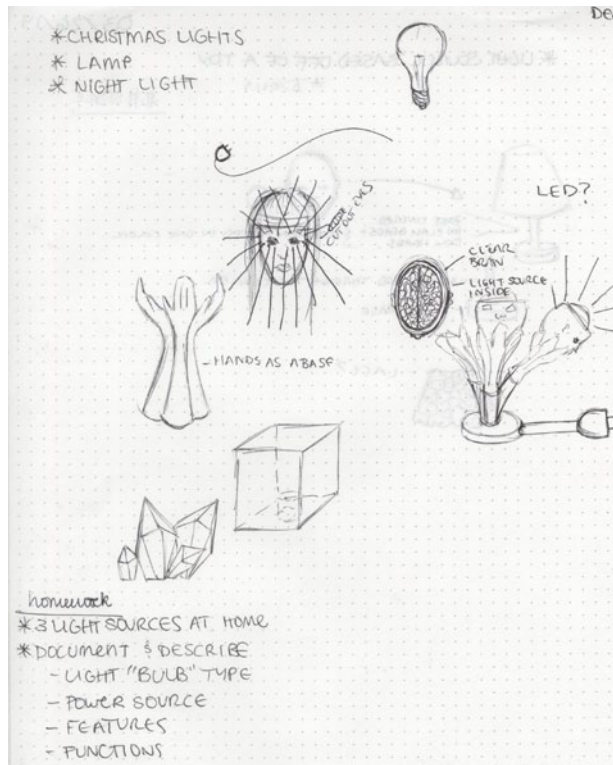 DE
*CHRISTMAS LIGHTS
* LAMP
* NIGHT LIGHT
LED?
CUT OUT EYES
CLEAR
BRAIN
LIGHT SOURCE
INSIDE
-HANDS AS A BASE
homework
*3 LIGHT SOURCES AT HOME
*DOCUMENT & DESCRIBE
- LIGHT "BULB" TYPE
- POWER SOURCE
- FEATURES
- FUNCTIONS